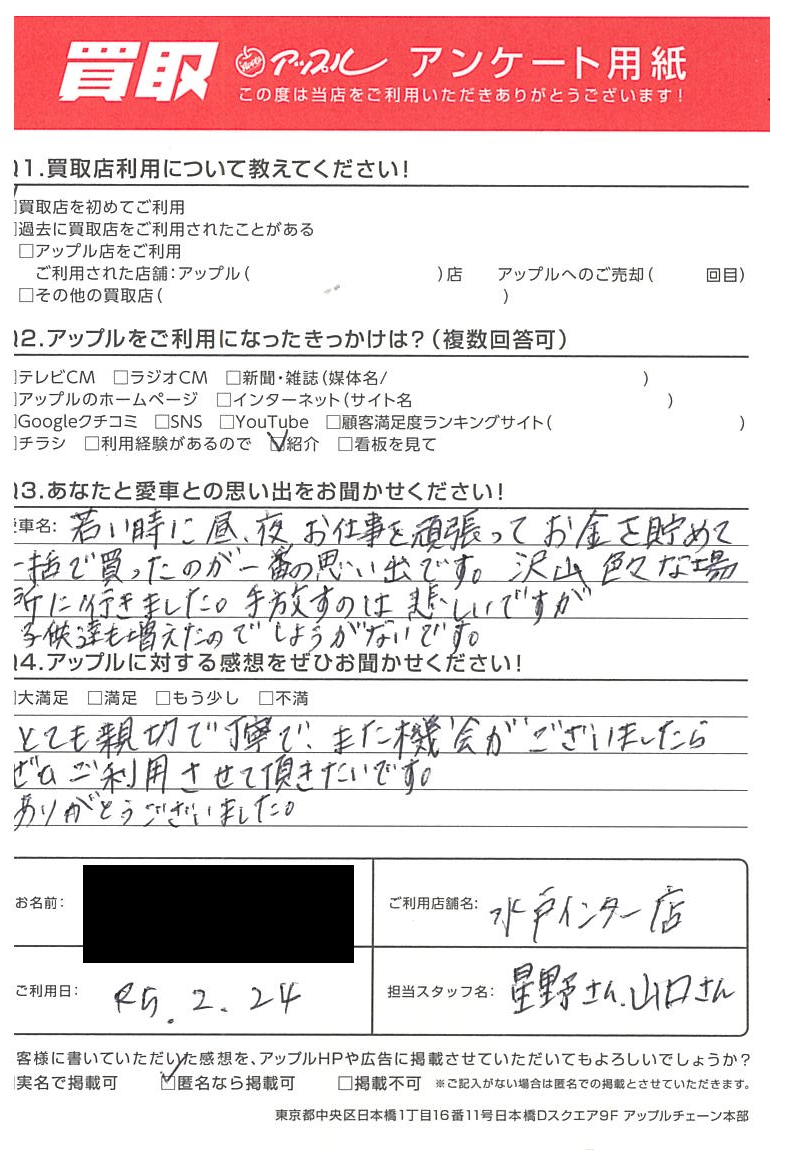 買取 アップル アンケート用紙
この度は当店をご利用いただきありがとうございます!
Q1.買取店利用について教えてください!
□買取店を初めてご利用
□過去に買取店をご利用されたことがある
□アップル店をご利用
ご利用された店舗:アップル( )店 アップルへのご売却( 回目)
□その他の買取店( )
Q2.アップルをご利用になったきっかけは?(複数回答可)
□テレビCM □ラジオCM □新聞・雑誌(媒体名/ )
□アップルのホームページ □インターネット(サイト名 )
□Googleクチコミ □SNS □YouTube □顧客満足度ランキングサイト( )
□チラシ □利用経験があるので ☑紹介 □看板を見て
Q3.あなたと愛車との思い出をお聞かせください!
愛車名: 若い時に昼、夜お仕事を頑張ってお金を貯めて
一括で買ったのが一番の思い出です。沢山色々な場
所に行きました。手放すのは悲しいですが
子供達も増えたのでしょうがないです。
Q4.アップルに対する感想をぜひお聞かせください!
□大満足 □満足 □もう少し □不満
とても親切で丁寧で、また機会がございましたら
ぜひご利用させて頂きたいです。
ありがとうございました。
お名前: ご利用店舗名: 水戸インター店
ご利用日: R5.2.24 担当スタッフ名: 星野さん、山口さん
客様に書いていただいた感想を、アップルHPや広告に掲載させていただいてもよろしいでしょうか?
□実名で掲載可 ☑匿名なら掲載可 □掲載不可 ※ご記入がない場合は匿名での掲載とさせていただきます。
東京都中央区日本橋1丁目16番11号日本橋Dスクエア9F アップルチェーン本部